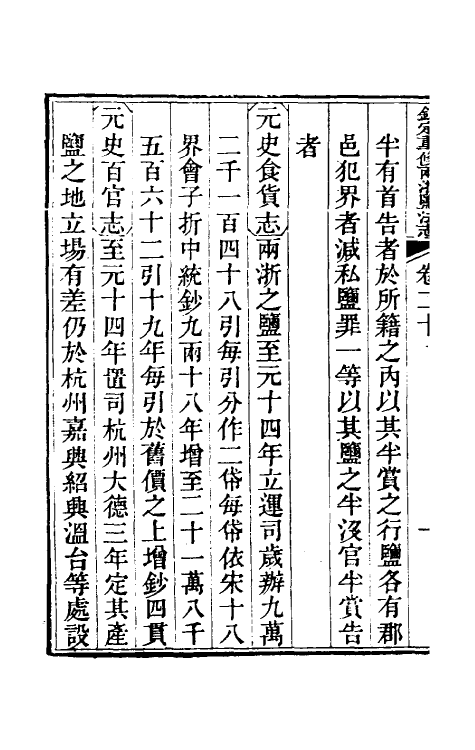 欽定重修兩浙鹽法志 卷二十 一
半有首告者於所籍之內以其半賞之行鹽各有郡
邑犯界者減私鹽罪一等以其鹽之半沒官半賞告
者
元史食貨志兩浙之鹽至元十四年立運司歲辦九萬
二千一百四十八引每引分作二俗每俗依宋十八
界會子折中統鈔九兩十八年增至二十一萬八千
五百六十二引十九年每引於舊價之上增鈔四貫
元史百官志至元十四年置司杭州大德三年定其產
鹽之地立場有差仍於杭州嘉興紹興溫台等處設